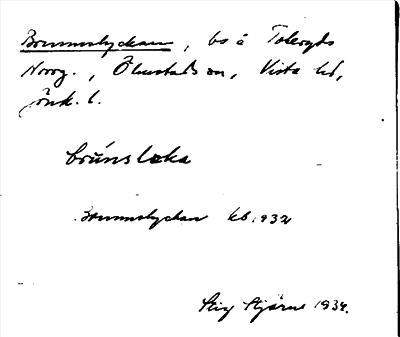 Brunnslyckan, bs å Toleryds
Norrg., Ölmstads sn, Vista hd,
Jönk. l.
brúnslæka
Brunnslyckan kb. 1932
Stig Stjärne 1934.